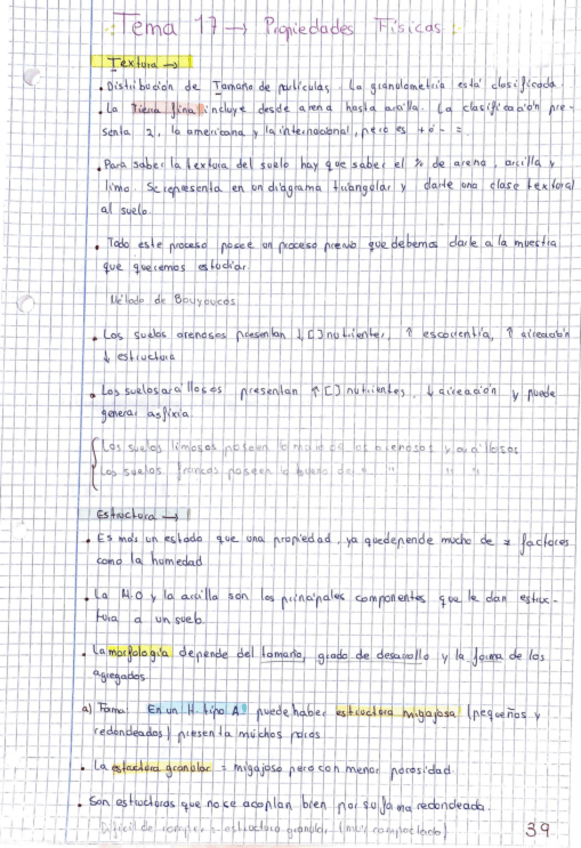 Tema 17 → Propiedades Físicas
Textura →
• Distribución de Tamaño de partículas. La granulometría está clasificada.
• La tierra fina incluye desde arena hasta arcilla. La clasificación pre-
senta 2, la americana y la internacional, pero es + o - =.
• Para saber la textura del suelo hay que saber el % de arena, arcilla y
limo. Se representa en un diagrama triangular y darle una clase textural
al suelo.
• Todo este proceso posee un proceso previo que debemos darle a la muestra
que queremos estudiar.
Método de Bouyoucos
• Los suelos arenosos presentan ↓ [ ] nutrientes, ↑ escorrentía, ↑ aireación
↓ estructura
• Los suelos arcillosos presentan ↑ [ ] nutrientes, ↓ aireación y puede
generar asfixia.
Los suelos limosos poseen lo malo de los arenosos y arcillosos
Los suelos francos poseen lo bueno de " " "
Estructura →
• Es más un estado que una propiedad, ya que depende mucho de ≠ factores
como la humedad
• La M.O y la arcilla son los principales componentes que le dan estruc-
tura a un suelo.
• La morfología depende del tamaño, grado de desarrollo y la forma de los
agregados
a) Forma: En un H. tipo A puede haber estructura migajosa (pequeños y
redondeados) presenta muchos poros
• La estructura granular = migajosa pero con menor porosidad.
• Son estructuras que no se acoplan bien por su forma redondeada.
Difícil de romper = estructura granular (muy compactado)
39